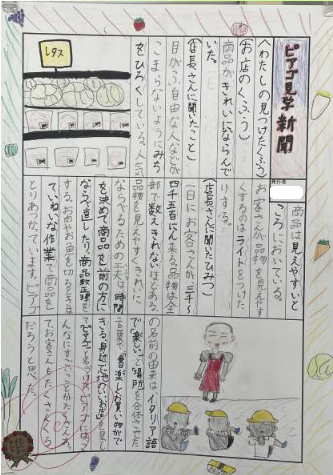 ピアゴ見学新聞
〈わたしの見つけたくふう〉
〈お店のくふう〉
商品がきれいにならんで
いた。
〈店長さんに聞いたこと〉
目がふ自由な人などが
こまらないようにみち
をひろくしている。人気
レタス
発行者
商品は見えやすいと
ころにおいている。
お客さんが品物を見えやす
くするのはライトをつけた
りする。
〈店長さんに聞いたひみつ〉
一日にお客さんが三千〜
四千五百にん来る。品物は全
部で数えきれないほどある。
品物を見やすくきれいに
ならべるための工夫は、時間
を決めて商品を前の方に
ならべ直したり、商品整理を
する。お肉やお魚を切るときは
ていねいな作業で商品を
とりあつかっています。ピアゴ
の名前の由来はイタリア語
で「楽しい」と「場所」を合体させた
言葉で、楽しくお買い物がで
きる、身近で地いきのお店を目
て「ピアゴ」と名づけた。ピアゴには、
んなすごいことがたくさん
てお客さんもたくさんくる
だろうと思った。